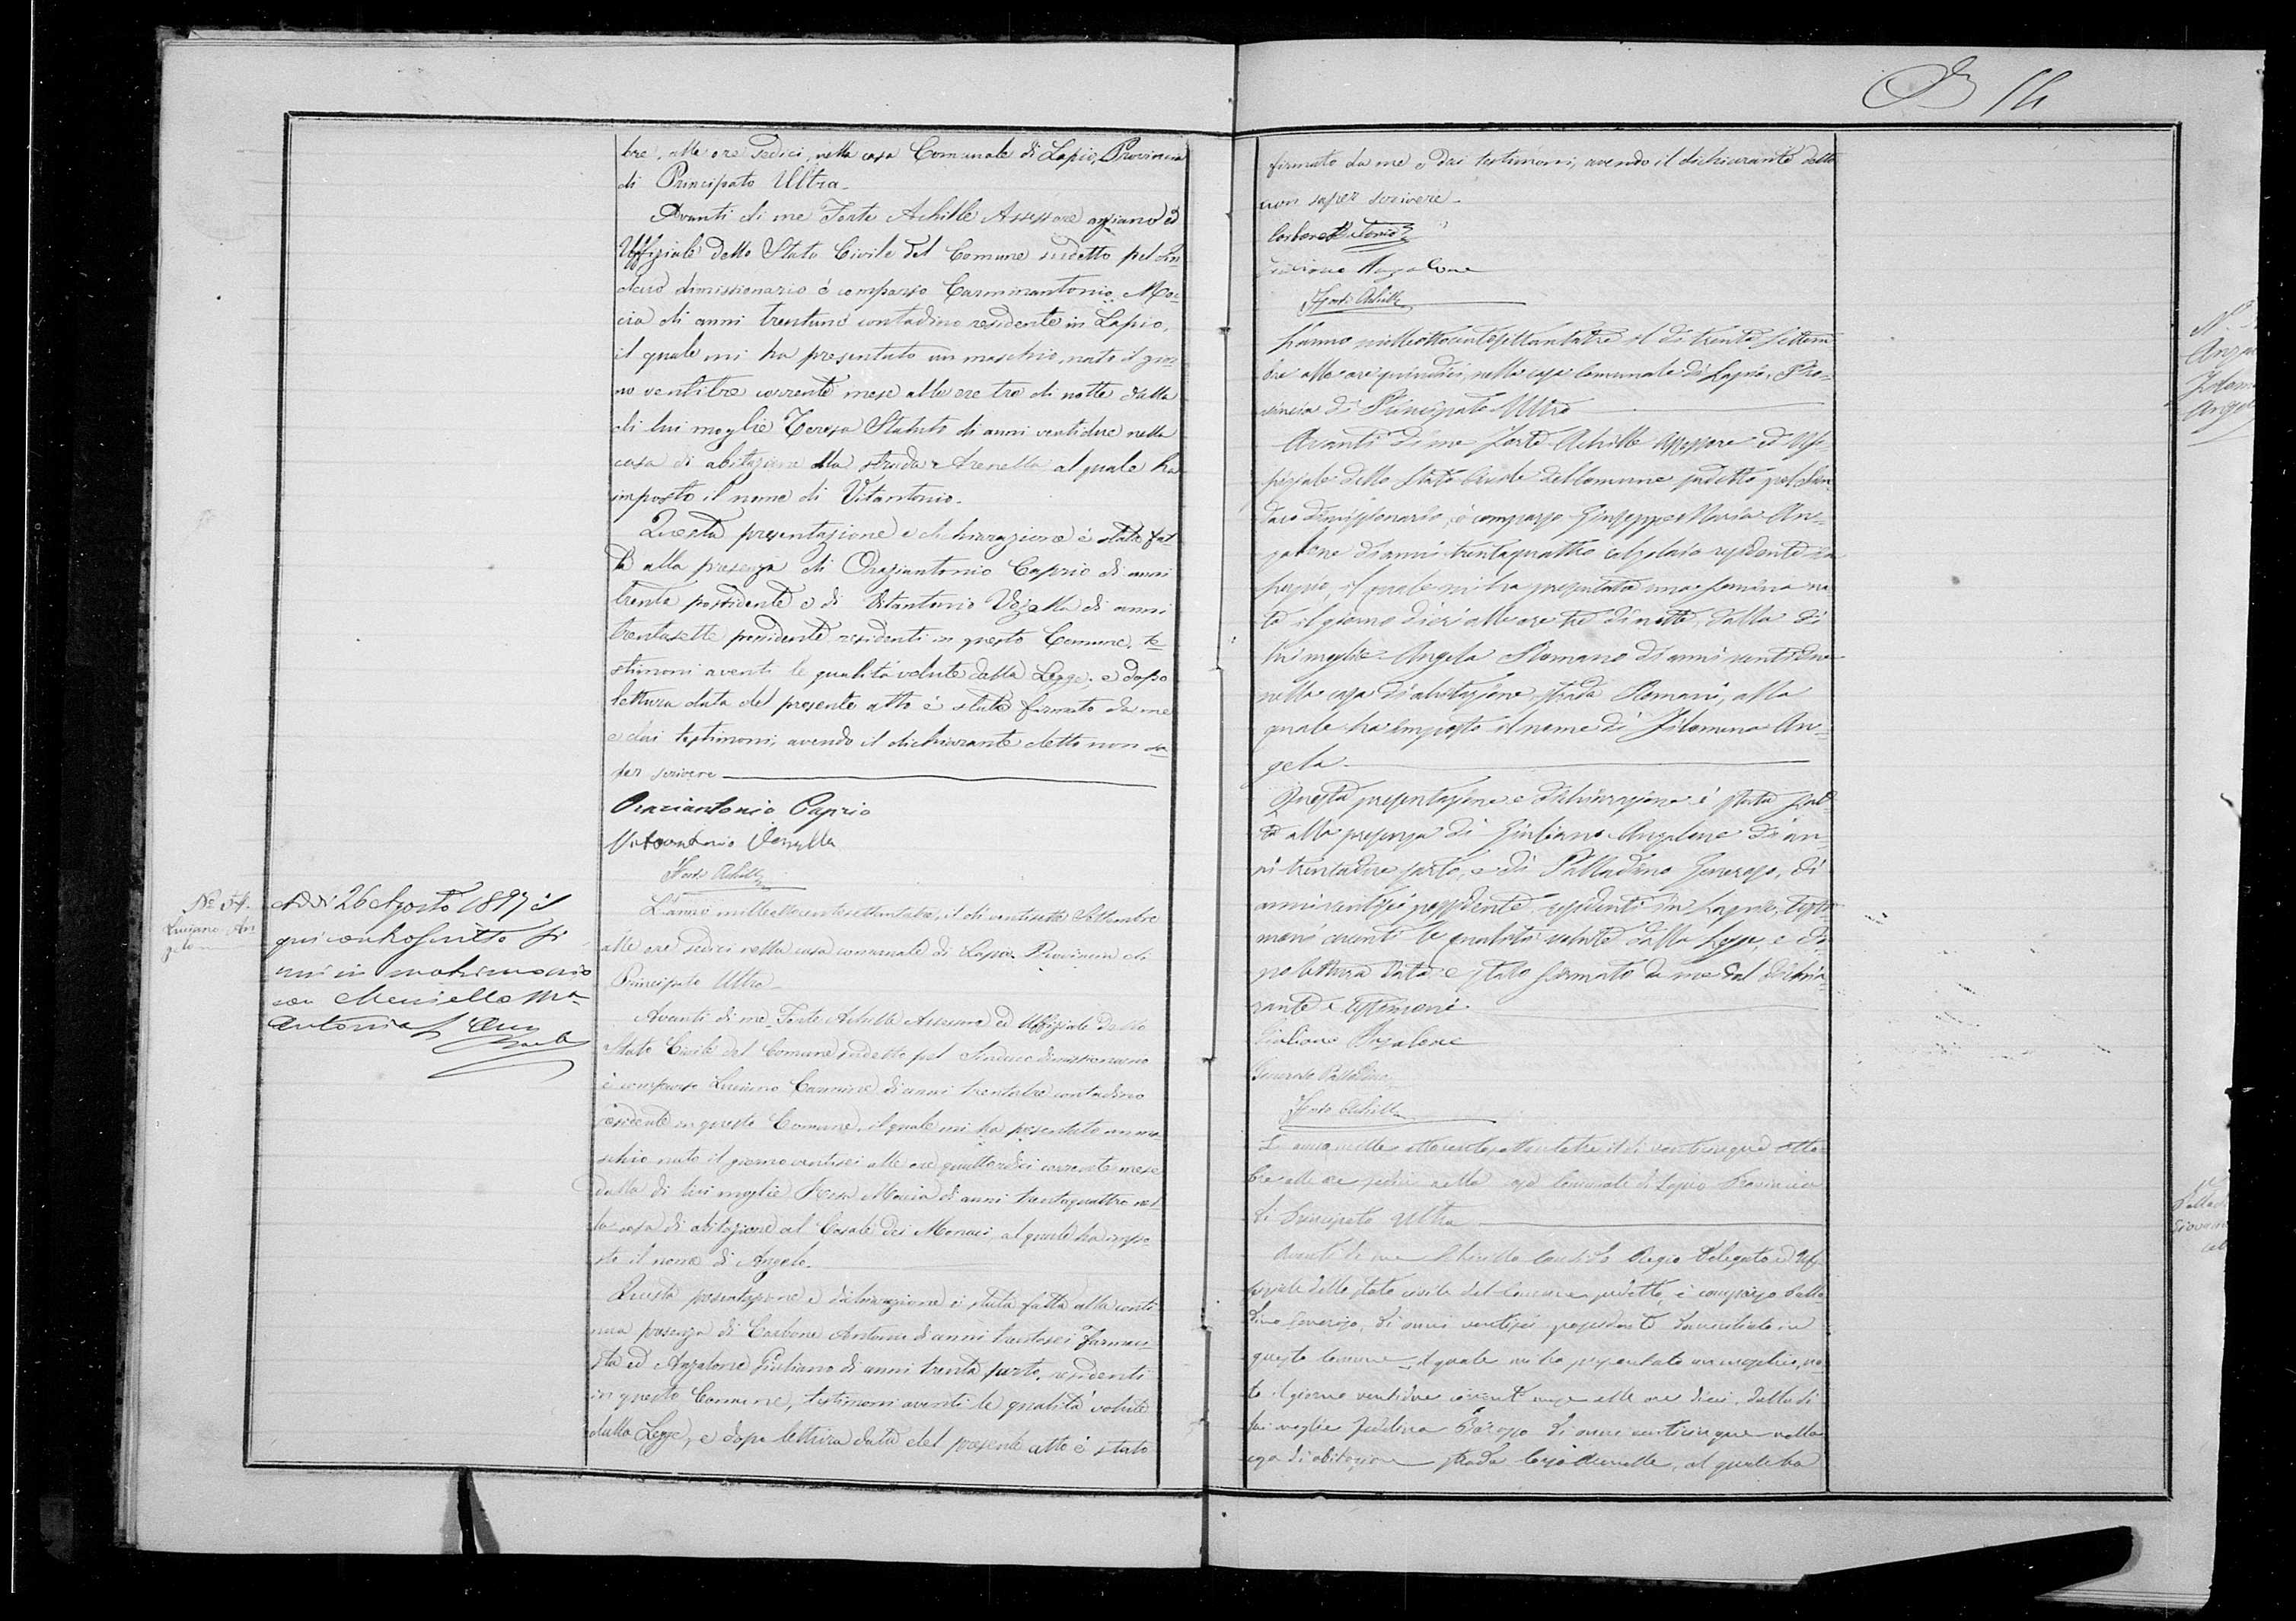 14
bre, alle ore sedici, nella casa Comunale di Lapio, Provincia
di Principato Ultra.
Avanti di me Forte Achille Assessore anziano ed
Uffiziale dello Stato Civile del Comune sudetto pel Sin-
daco dimissionario è comparso Carminantonio Moc-
cia di anni trentuno contadino residente in Lapio,
il quale mi ha presentato un maschio, nato il gior-
no ventitre corrente mese alle ore tre di notte dalla
di lui moglie Teresa Statuto di anni ventidue nella
casa di abitazione alla strada Arenella al quale ha
imposto il nome di Vitantonio.
Questa presentazione e dichiarazione è stata fat-
ta alla presenza di Oraziantonio Caprio di anni
trenta possidente e di Vitantonio di anni
trentasette possidente residenti in questo Comune, te-
stimoni aventi le qualità volute dalla Legge, e dopo
lettura data del presente atto è stato firmato da me
e dai testimoni, avendo il dichiarante detto non sa-
per scrivere
Oraziantonio Caprio
Vitoantonio
Forte Achille
N.º 54.
Luciano An
gelo
Addì 26 Agosto 1897 il
qui controscritto si
unì in matrimonio
con Meniello Ma
Antonia
L'anno milleottocentosettantatre, il dì ventisette Settembre
alle ore sedici nella casa comunale di Lapio Provincia di
Principato Ultra
Avanti di me Forte Achille Assessore ed Uffiziale dello
Stato Civile del Comune sudetto pel Sindaco dimissionario
è comparso Luciano Carmine di anni trentatre contadino
residente in questo Comune, il quale mi ha presentato un ma-
schio nato il giorno ventisei alle ore quattordici corrente mese
dalla di lui moglie Rosa Moccia di anni trentaquattro nel
la casa di abitazione al Casale dei Monaci, al quale ha impo-
sto il nome di Angelo.
Questa presentazione e dichiarazione è stata fatta alla conti
nua presenza di Carbone Antonio di anni trentasei Farmaci-
sta ed Anzalone Giuliano di anni trenta sarto, residenti
in questo Comune, testimoni aventi le qualità volute
dalla Legge, e dopo lettura data del presente atto è stato
firmato da me e dai testimoni, avendo il dichiarante detto
non saper scrivere.
Carbone Antonio
Giuliano Anzalone
Forte Achille
L'anno milleottocentosettantatre il dì trenta Settem
bre alle ore quindici, nella casa Comunale di Lapio, Pro-
vincia di Principato Ultra
Avanti di me Forte Achille Assessore ed Uf-
fiziale dello Stato Civile del Comune sudetto pel Sin-
daco dimissionario, è comparso Giuseppe Maria An-
zalone di anni trentaquattro calzolaio residente in
Lapio, il quale mi ha presentato una femina na
ta il giorno di ieri alle ore tre di notte, dalla di
lui moglie Angela Romano di anni ventidue
nella casa di abitazione strada Romani, alla
quale ha imposto il nome di Filomena An-
gela
Questa presentazione e dichiarazione è stata fat-
ta alla presenza di Giuliano Anzalone di an-
ni trentadue sarto, e di Palladino Generoso, di
anni ventisei possidente, residenti in Lapio, testi-
moni aventi le qualità volute dalla Legge, e do-
po lettura data è stato firmato da me dal dichia-
rante e testimoni
Giuliano Anzalone
Generoso Palladino
Forte Achille
L'anno mille ottocentosettantatre il dì venticinque otto
bre alle ore sedici nella casa Comunale di Lapio Provincia
di Principato Ultra
Avanti di me Regio Delegato ed Uf-
fiziale dello stato civile del Comune sudetto, è comparso Palla-
dino Generoso, di anni ventisei possidente domiciliato in
questo Comune, il quale mi ha presentato un maschio, na-
to il giorno ventidue corrente mese alle ore dieci, dalla di
lui moglie di anni venticinque nella
casa di abitazione strada, al quale ha